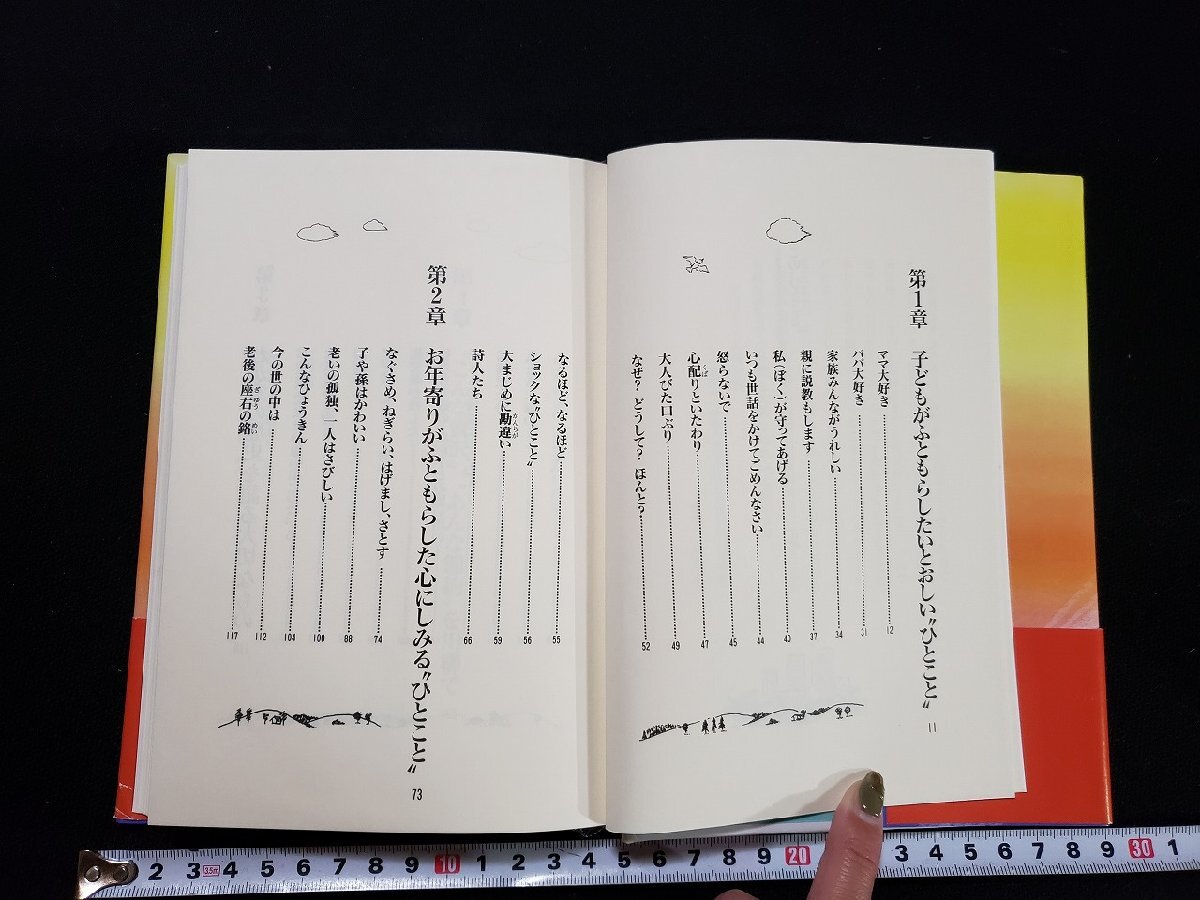 第1章 子どもがふともらしたいとおしい〝ひとこと〟 11
ママ大好き 12
パパ大好き 31
家族みんながうれしい 34
親に説教もします 37
私(ぼく)が守ってあげる 43
いつも世話をかけてごめんなさい 44
怒らないで 45
心配りといたわり 47
大人びた口ぶり 49
なぜ? どうして? ほんと? 52
なるほど、なるほど 55
ショックな〝ひとこと〟 56
大まじめに勘違い 59
詩人たち 66
第2章 お年寄りがふともらした心にしみる〝ひとこと〟 73
なぐさめ、ねぎらい、はげまし、さとす 74
子や孫はかわいい 88
老いの孤独、一人はさびしい 100
こんなひょうきん 104
今の世の中は 112
老後の座右の銘 117
2 3 3.5m 4 5 6 7 8 9 10 1 2 3 4 5 6 7 8 9 20 3 4 5 6 7 8 9 30 1